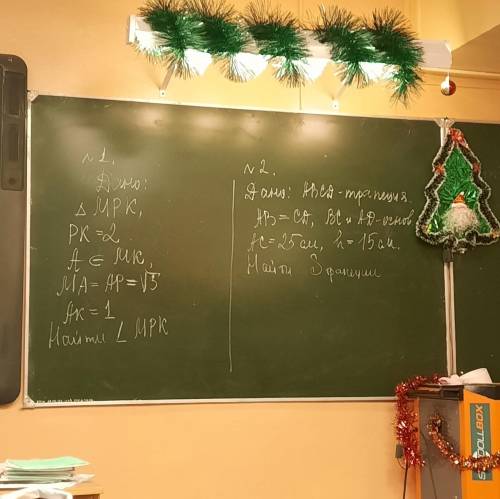 №1.
Дано:
△ MPK,
PK = 2
A ∈ MK,
MA = AP = √5
AK = 1
Найти ∠ MPK
№2.
Дано: ABCD - трапеция.
AB = CD, BC и AD - основ.
AC = 25 см, h = 15 см.
Найти S трапеции